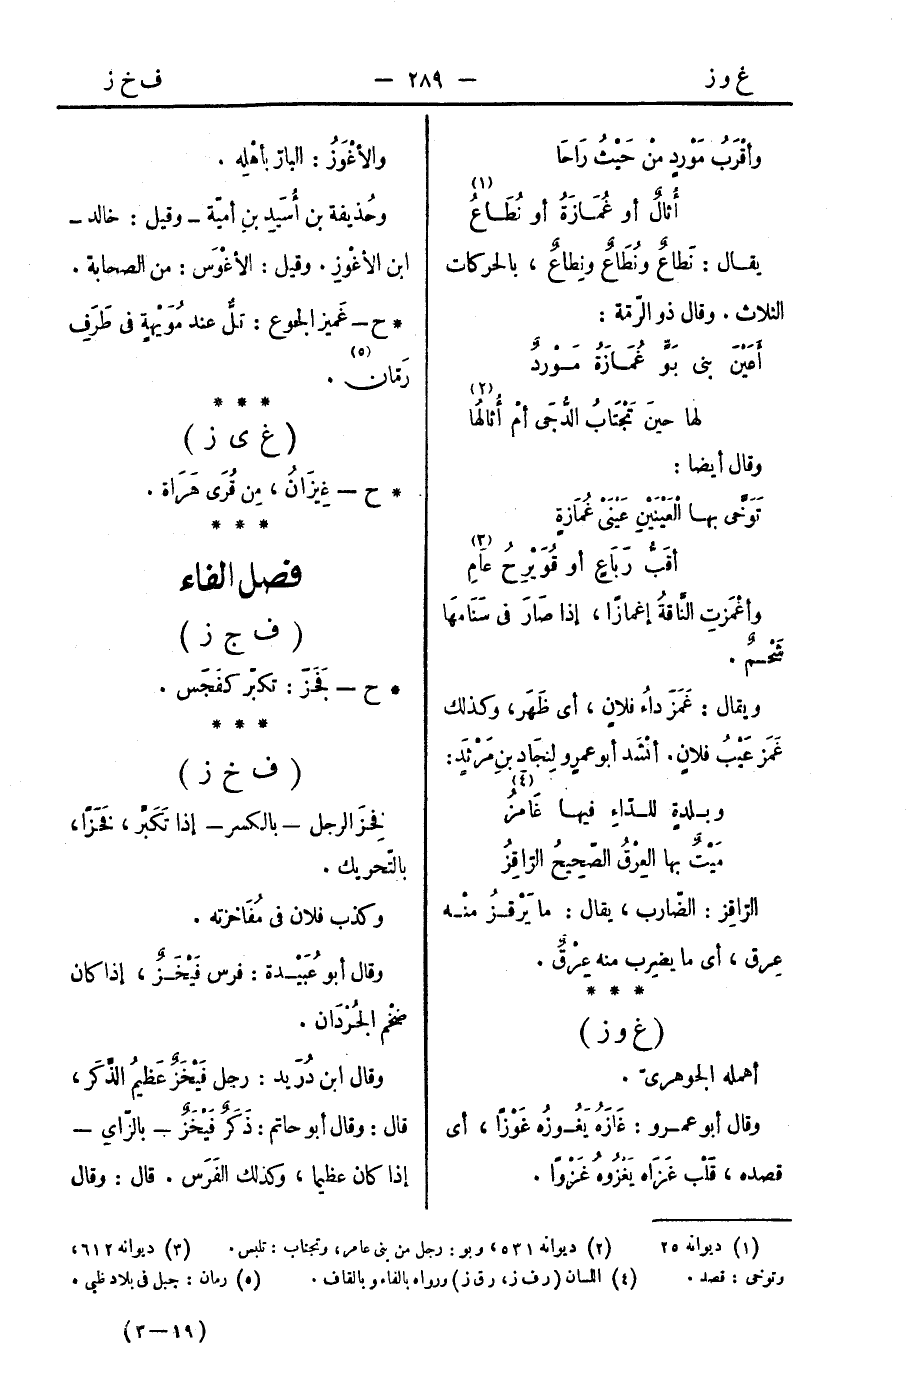 غ و ز — ٢٨٩ — ف خ ز
وأقْرَبُ مَوْرِدٍ مِنْ حَيْثُ رَاحَا
أُثالٌ أو غُمَـازَةُ أو نُطَـاعُ (١)
يقـال : نَطاعٌ ونُطَاعٌ ونِطاعٌ ، بالحركات
الثلاث . وقال ذو الرّمّة :
أَعَيْنَ بنى بَوٍّ غُمَـازَةُ مَـوْرِدٌ
لها حينَ تَجْتَابُ الدُّجَى أمْ أُثالُهَا (٢)
وقال أيضا :
تَوَخَّى بهـا الْعَيْنَيْنِ عَيْنَىْ غُمَازةٍ
أقَبُّ رَبَاعٍ أو قُوَيْرِحُ عَامِ (٣)
وأغْمَزتِ النَّاقةُ إغمازًا ، إذا صَارَ فى سَنَامهَا
شَحْـمٌ .
ويقال : غَمَزَ داءُ فلانٍ ، أى ظَهَر، وكذلك
غَمَز عَيْبُ فلان. أنْشَد أبو عمرو لِنجَاد بنِ مَرْثَدٍ :
وبـلدةٍ للـدّاءِ فيهـا غَامزُ (٤)
مَيْتٌ بها العِرْقُ الصَّحِيحُ الرّاقِزُ
الرّاقِز : الضّارب ، يقال : ما يَرْقـزُ منـه
عِرق ، أى ما يضرِب منه عِرْقٌ .
* * *
(غ و ز)
أهمله الجوهرىّ .
وقال أبو عمـرو : غَازَهُ يَغُـوزُه غَوْزًا ، أى
قصده ، قَلْب غَزَاه يَغْزُوهُ غَزْوًا .
والأغْوَزُ : البارّ بأهْلِه .
وحُذيفة بن أُسَيدِ بنِ أميّة ــ وقيل : خالد ــ
ابن الأغْوزِ . وقيل : الأغْوَس : من الصحابة .
* ح ــ غَميز الجوع : تلٌّ عند مُوَيْهةٍ فى طَرَفِ
رَمّان . (٥)
* * *
(غ ى ز)
* ح ــ غِيزَانُ ، مِن قُرَى هَرَاة .
* * *
فصل الفاء
(ف ج ز)
* ح ــ فَجَزَ : تكبّر كفَجَس .
* * *
(ف خ ز)
فَخِزَ الرجل ــ بالكسر ــ إذا تَكَبَّر ، فَخَزًا ،
بالتّحريك .
وكذب فلان فى مُفَاخزته .
وقال أبو عُبَيْـدة : فرس فَيْخَـزٌ ، إذا كان
ضخْم الجُرْدَان .
وقال ابن دُرَيد : رجل فَيْخَزٌ عَظيمُ الذَّكَر ،
قال : وقال أبو حاتم : ذَكَرٌ فَيْخَزٌ ــ بالزّاي ــ
إذا كان عظيما ، وكذلك الفَرَس . قال : وقال
(١) ديوانه ٢٥ (٢) ديوانه ٥٣١ ، وبو : رجل من بنى عامر، وتجتاب : تلبس . (٣) ديوانه ٦١٢ ،
وتوخى : قصد . (٤) اللسان (رف ز، رق ز) ورواه بالفاء وبالقاف . (٥) رمان : جبل فى بلاد طيئ .
(١٩ — ٣)